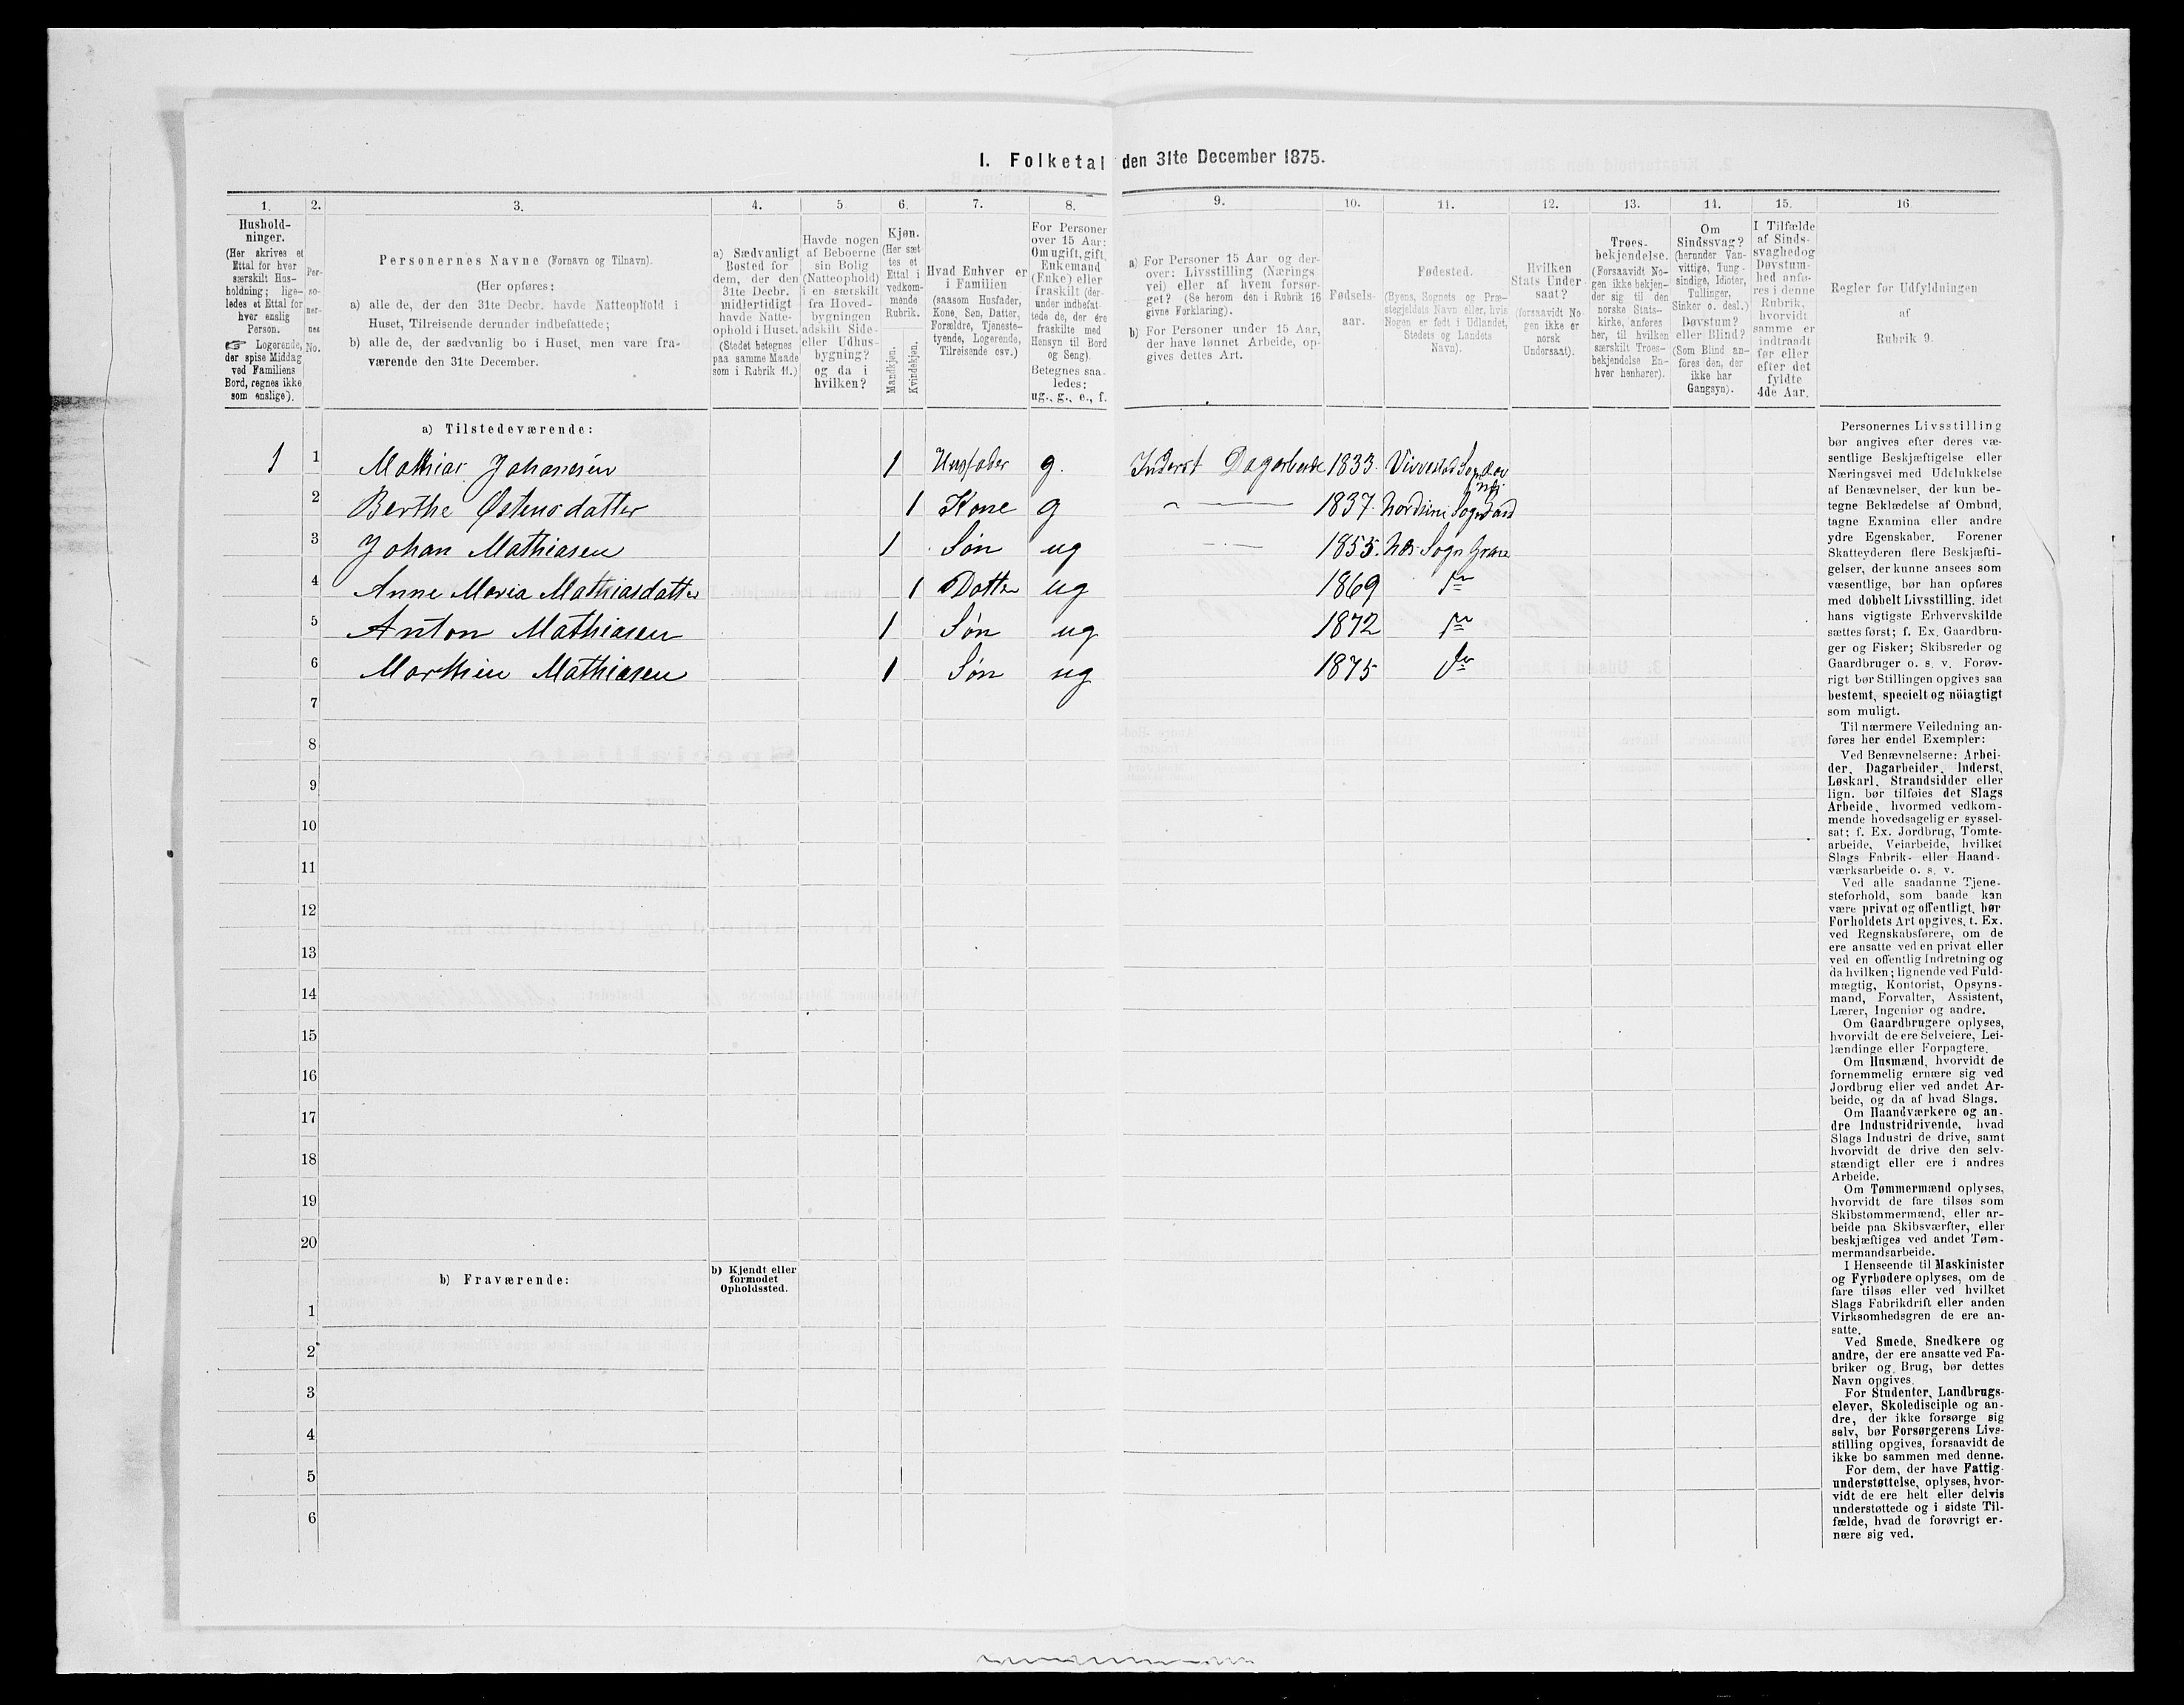 I. Folketal den 31te December 1875.
1.
Hushold-
ninger.
(Her skrives et
Ettal for hver
særskilt Hus-
holdning; lige-
ledes et Ettal for
hver enslig
Person.
☞ Logerende,
der spise Middag
ved Familiens
Bord, regnes ikke
som enslige).
2.
Per-
so-
ner-
nes
No.
3.
Personernes Navne (Fornavn og Tilnavn).
(Her opføres:
a) alle de, der den 31te Decbr. havde Natteophold i
Huset, Tilreisende derunder indbefattede;
b) alle de, der sædvanlig bo i Huset, men vare fra-
værende den 31te December.
4.
a) Sædvanligt
Bosted for
dem, der den
31te Decbr.
midlertidigt
havde Natte-
ophold i Huset.
(Stedet betegnes
paa samme Maade
som i Rubrik 11.)
5
Havde nogen
af Beboerne
sin Bolig
(Natteophold)
i en særskilt
fra Hoved-
bygningen
adskilt Side-
eller Udhus-
bygning?
og da i
hvilken?
6.
Kjøn.
(Her sæt-
tes et
Ettal i
vedkom-
mende
Rubrik.
Mandkjøn.
Kvindekjøn.
7.
Hvad Enhver er
i Familien
(saasom Husfader,
Kone, Søn, Datter,
Forældre, Tjeneste-
tyende, Logerende,
Tilreisende osv.)
8.
For Personer
over 15 Aar:
Om ugift, gift,
Enkemand
(Enke) eller
fraskilt (der-
under indbefat-
tede de, der ere
fraskilte med
Hensyn til Bord
og Seng).
Betegnes saa-
ledes:
ug., g., e., f.
9.
a) For Personer 15 Aar og der-
over: Livsstilling (Nærings
vei) eller af hvem forsør-
get? (Se herom den i Rubrik 16
givne Forklaring).
b) For Personer under 15 Aar,
der have lønnet Arbeide, op-
gives dettes Art.
10.
Fødsels-
aar.
11.
Fødested.
(Byens, Sognets og Præ-
stegjeldets Navn eller, hvis
Nogen er født i Udlandet,
Stedets og Landets
Navn).
12.
Hvilken
Stats Under-
saat?
(forsaavidt No-
gen ikke er
norsk
Undersaat).
13.
Troes-
bekjendelse.
(Forsaavidt No-
gen ikke bekjen-
der sig til den
norske Stats-
kirke, anføres
her, til hvilken
særskilt Troes-
bekjendelse En-
hver henhører).
14.
Om
Sindssvag?
(herunder Van-
vittige, Tung-
sindige, Idioter,
Tullinger,
Sinker o. desl.)
Døvstum?
eller Blind?
(Som Blind an-
føres den, der
ikke har
Gangsyn).
15.
I Tilfælde
af Sinds-
svaghedog
Døvstum-
hed anfø-
res i denne
Rubrik,
hvorvidt
samme er
indtraadt
før eller
efter det
fyldte
4de Aar.
16
Regler for Udfyldningen
af
Rubrik 9.
a) Tilstedeværende:
1 1 Mathias Johanesen 1 Husfader g. Inderst Dagarbeide 1833.
2 Berthe Østensdatter 1 Kone g 1837.
3 Johan Mathiasen 1 Søn ug 1855. Næs Sogn Grane
4 Anne Maria Mathiasdatter 1 Datter ug 1869
5 Anton Mathiasen 1 Søn ug 1872
6 Marthin Mathiasen 1 Søn ug 1875
7
8
9
10
11
12
13
14
15
16
17
18
19
20
b) Fraværende:
b) Kjendt eller
formodet
Opholdssted.
1
2
3
4
5
6
Personernes Livsstilling
bør angives efter deres væ-
sentlige Beskjæftigelse eller
Næringsvei med Udelukkelse
af Benævnelser, der kun be-
tegne Beklædelse af Ombud,
tagne Examina eller andre
ydre Egenskaber. Forener
Skatteyderen flere Beskjæfti-
gelser, der kunne ansees som
væsentlige, bør han opføres
med dobbelt Livsstilling, idet
hans vigtigste Erhvervskilde
sættes først; f. Ex. Gaardbru-
ger og Fisker; Skibsreder og
Gaardbruger o. s. v. Forøv-
rigt bør Stillingen opgives saa
bestemt, specielt og nöiagtigt
som muligt.
Til nærmere Veiledning an-
føres her endel Exempler:
Ved Benævnelserne: Arbei-
der, Dagarbeider, Inderst,
Løskarl, Strandsidder eller
lign. bør tilføies det Slags
Arbeide, hvormed vedkom-
mende hovedsagelig er syssel-
sat; f. Ex. Jordbrug, Tomte-
arbeide, Veiarbeide, hvilket
Slags Fabrik- eller Haand-
værksarbeide o. s. v.
Ved alle saadanne Tjene-
steforhold, som baade kan
være privat og offentligt, bør
Forholdets Art opgives, t. Ex.
ved Regnskabsførere, om de
ere ansatte ved en privat eller
ved en offentlig Indretning og
da hvilken; lignende ved Fuld-
mægtig, Kontorist, Opsyns-
mand, Forvalter, Assistent,
Lærer, Ingeniør og andre.
Om Gaardbrugere oplyses,
hvorvidt de ere Selveiere, Lei-
lændinge eller Forpagtere.
Om Husmænd, hvorvidt de
fornemmelig ernære sig ved
Jordbrug eller ved andet Ar-
beide, og da af hvad Slags.
Om Haandværkere og an-
dre Industridrivende, hvad
Slags Industri de drive, samt
hvorvidt de drive den selv-
stændigt eller ere i andres
Arbeide.
Om Tømmermænd oplyses,
hvorvidt de fare tilsøs som
Skibstømmermænd, eller ar-
beide paa Skibsværfter, eller
beskjæftiges ved andet Tøm-
mermandsarbeide.
I Henseende til Maskinister
og Fyrbødere oplyses, om de
fare tilsøs eller ved hvilket
Slags Fabrikdrift eller anden
Virksomhedsgren de ere an-
satte.
Ved Smede, Snedkere og
andre, der ere ansatte ved Fa-
briker og Brug, bør dettes
Navn opgives.
For Studenter, Landbrugs-
elever, Skoledisciple og an-
dre, der ikke forsørge sig
selv, bør Forsørgerens Livs-
stilling opgives, forsaavidt de
ikke bo sammen med denne.
For dem, der have Fattig-
understøttelse, oplyses, hvor-
vidt de ere helt eller delvis
understøttede og i sidste Til-
fælde, hvad de forøvrigt er-
nære sig ved.